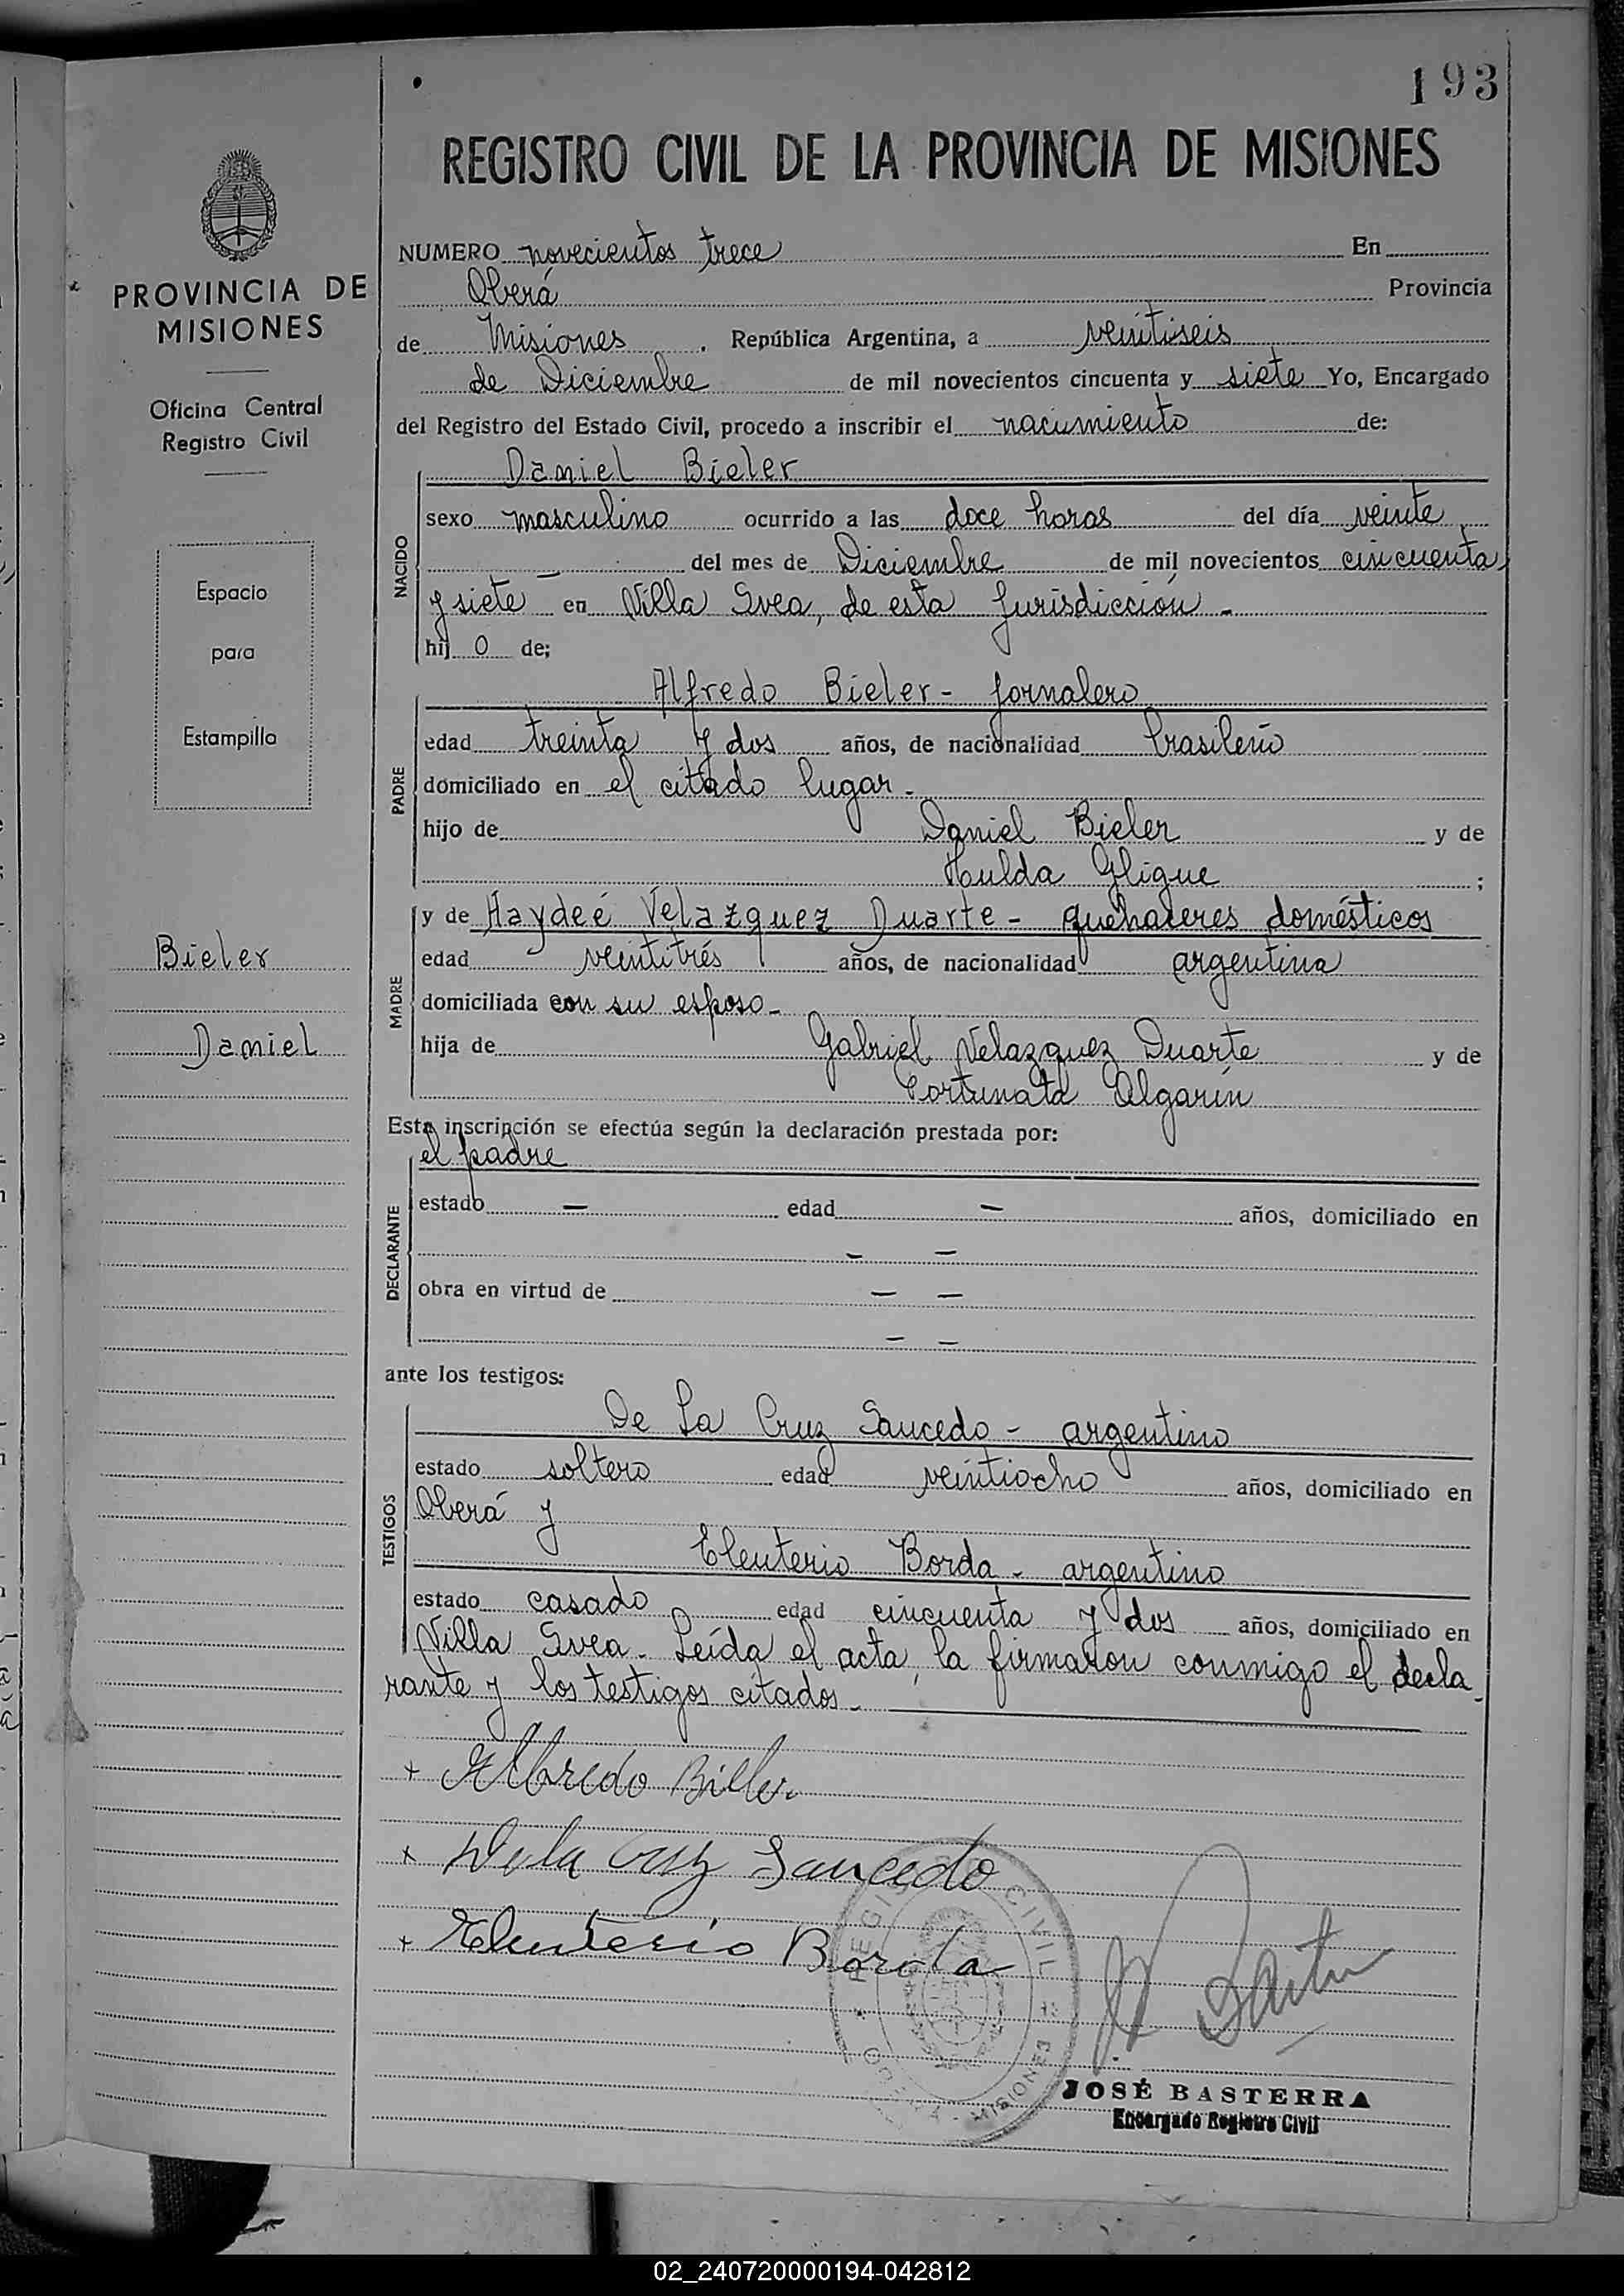 193
REGISTRO CIVIL DE LA PROVINCIA DE MISIONES
PROVINCIA DE
MISIONES
Oficina Central
Registro Civil
Espacio
para
Estampilla
Bieler
Daniel
NUMERO novecientos trece En
Oberá Provincia
de Misiones . República Argentina, a veintiseis
de Diciembre de mil novecientos cincuenta y siete Yo, Encargado
del Registro del Estado Civil, procedo a inscribir el nacimiento de:
NACIDO
Daniel Bieler
sexo masculino ocurrido a las doce horas del día veinte
— del mes de Diciembre de mil novecientos cincuenta
y siete en Villa Svea, de esta Jurisdicción -
hij o de;
PADRE
Alfredo Bieler - Jornalero
edad treinta y dos años, de nacionalidad brasileño
domiciliado en el citado lugar -
hijo de Daniel Bieler y de
Hulda Gligue ;
MADRE
y de Haydeé Velazquez Duarte - quehaceres domésticos
edad veintitrés años, de nacionalidad argentina
domiciliada con su esposo -
hija de Gabriel Velazquez Duarte y de
Fortunata Algarín
Esta inscripción se efectúa según la declaración prestada por:
DECLARANTE
el padre
estado — edad — años, domiciliado en
— —
obra en virtud de — —
— —
ante los testigos:
TESTIGOS
De La Cruz Saucedo - argentino
estado soltero edad veintiocho años, domiciliado en
Oberá y
Eleuterio Borda - argentino
estado casado edad cincuenta y dos años, domiciliado en
Villa Svea. Leída el acta, la firmaron conmigo el decla
rante y los testigos citados -
+ Alfredo Bieler
+ De la Cruz Saucedo
+ Eleuterio Borda
REGISTRO CIVIL
MISIONES
JOSÉ BASTERRA
Encargado Registro Civil
02_240720000194-042812